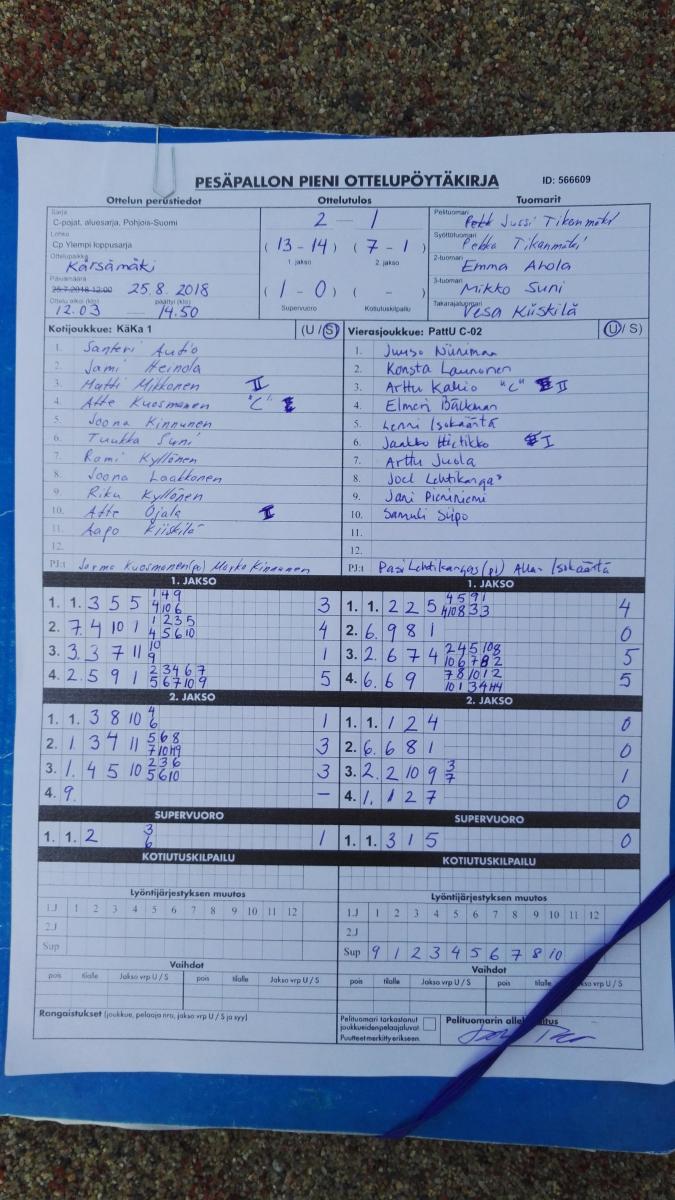 PESÄPALLON PIENI OTTELUPÖYTÄKIRJA ID: 566609
Ottelun perustiedot Ottelutulos Tuomarit
Sarja
C-pojat, aluesarja, Pohjois-Suomi
Lohko
Cp Ylempi loppusarja
Ottelupaikka
Kärsämäki
Päivämäärä
25.7.2018 12:00 25.8.2018
Ottelu alkoi (klo) päättyi (klo)
12.03 — 14.50
2 — 1
( 13 - 14 ) ( 7 - 1 )
1. jakso 2. jakso
( 1 - 0 ) ( - )
Supervuoro Kotiutuskilpailu
Pelituomari
Jussi Tikanmäki
Syöttötuomari
Pekka Tikanmäki
2-tuomari
Emma Ahola
3-tuomari
Mikko Suni
Takarajatuomari
Vesa Kiiskilä
Kotijoukkue: KäKa 1 (U / S)
1. Santeri Autio
2. Jami Heinola
3. Matti Mikkonen II
4. Atte Kuosmanen "C"
5. Joona Kinnunen
6. Tuukka Suni
7. Romi Kyllönen
8. Joona Laakkonen
9. Riku Kyllönen
10. Atte Ojala I
11. Aapo Kiiskilä
12.
PJ:t Jorma Kuosmanen (pj) Marko Kinnunen
Vierasjoukkue: PattU C-02 (U / S)
1. Juuso Niiniman
2. Konsta Launonen
3. Arttu Kallio "C" II
4. Elmeri Bälkman
5. Lenni Isokääntä
6. Jaakko Hietikko I
7. Arttu Juola
8. Joel Lehtikangas
9. Jani Pieniniemi
10. Samuli Siipo
11.
12.
PJ:t Pasi Lehtikangas (pj) Allan Isokääntä
1. JAKSO
1. 1. 3 5 5 1 4 9 4 10 6 3
2. 7. 4 10 1 1 2 3 5 4 5 6 10 4
3. 3. 3 7 11 10 9 1
4. 2. 5 9 1 2 3 4 6 7 5 6 7 10 9 5
2. JAKSO
1. 1. 3 8 10 4 6 1
2. 1. 3 4 11 5 6 8 7 10 11 9 3
3. 1. 4 5 10 2 3 6 5 6 10 3
4. 9. —
SUPERVUORO
1. 1. 2 3 6 1
KOTIUTUSKILPAILU
1. JAKSO
1. 1. 2 2 5 4 5 9 1 4 10 8 3 3 4
2. 6. 9 8 1 0
3. 2. 6 7 4 2 4 5 10 8 10 6 7 8 2 5
4. 6. 6 9 7 8 10 1 2 10 1 3 4 4 4 5
2. JAKSO
1. 1. 1 2 4 0
2. 6. 6 8 1 0
3. 2. 2 10 9 3 7 1
4. 1. 1 2 7 0
SUPERVUORO
1. 1. 3 1 5 0
KOTIUTUSKILPAILU
Lyöntijärjestyksen muutos
1.J 1 2 3 4 5 6 7 8 9 10 11 12
2.J
Sup
Vaihdot
pois tilalle Jakso vrp U / S pois tilalle Jakso vrp U / S
Lyöntijärjestyksen muutos
1.J 1 2 3 4 5 6 7 8 9 10 11 12
2.J
Sup 9 1 2 3 4 5 6 7 8 10
Vaihdot
pois tilalle Jakso vrp U / S pois tilalle vrp U / S
Rangaistukset (joukkue, pelaaja nro, jakso vrp U / S ja syy)
Pelituomari tarkastanut
joukkueiden pelaajaluvat
Puutteet merkitty erikseen.
Pelituomarin